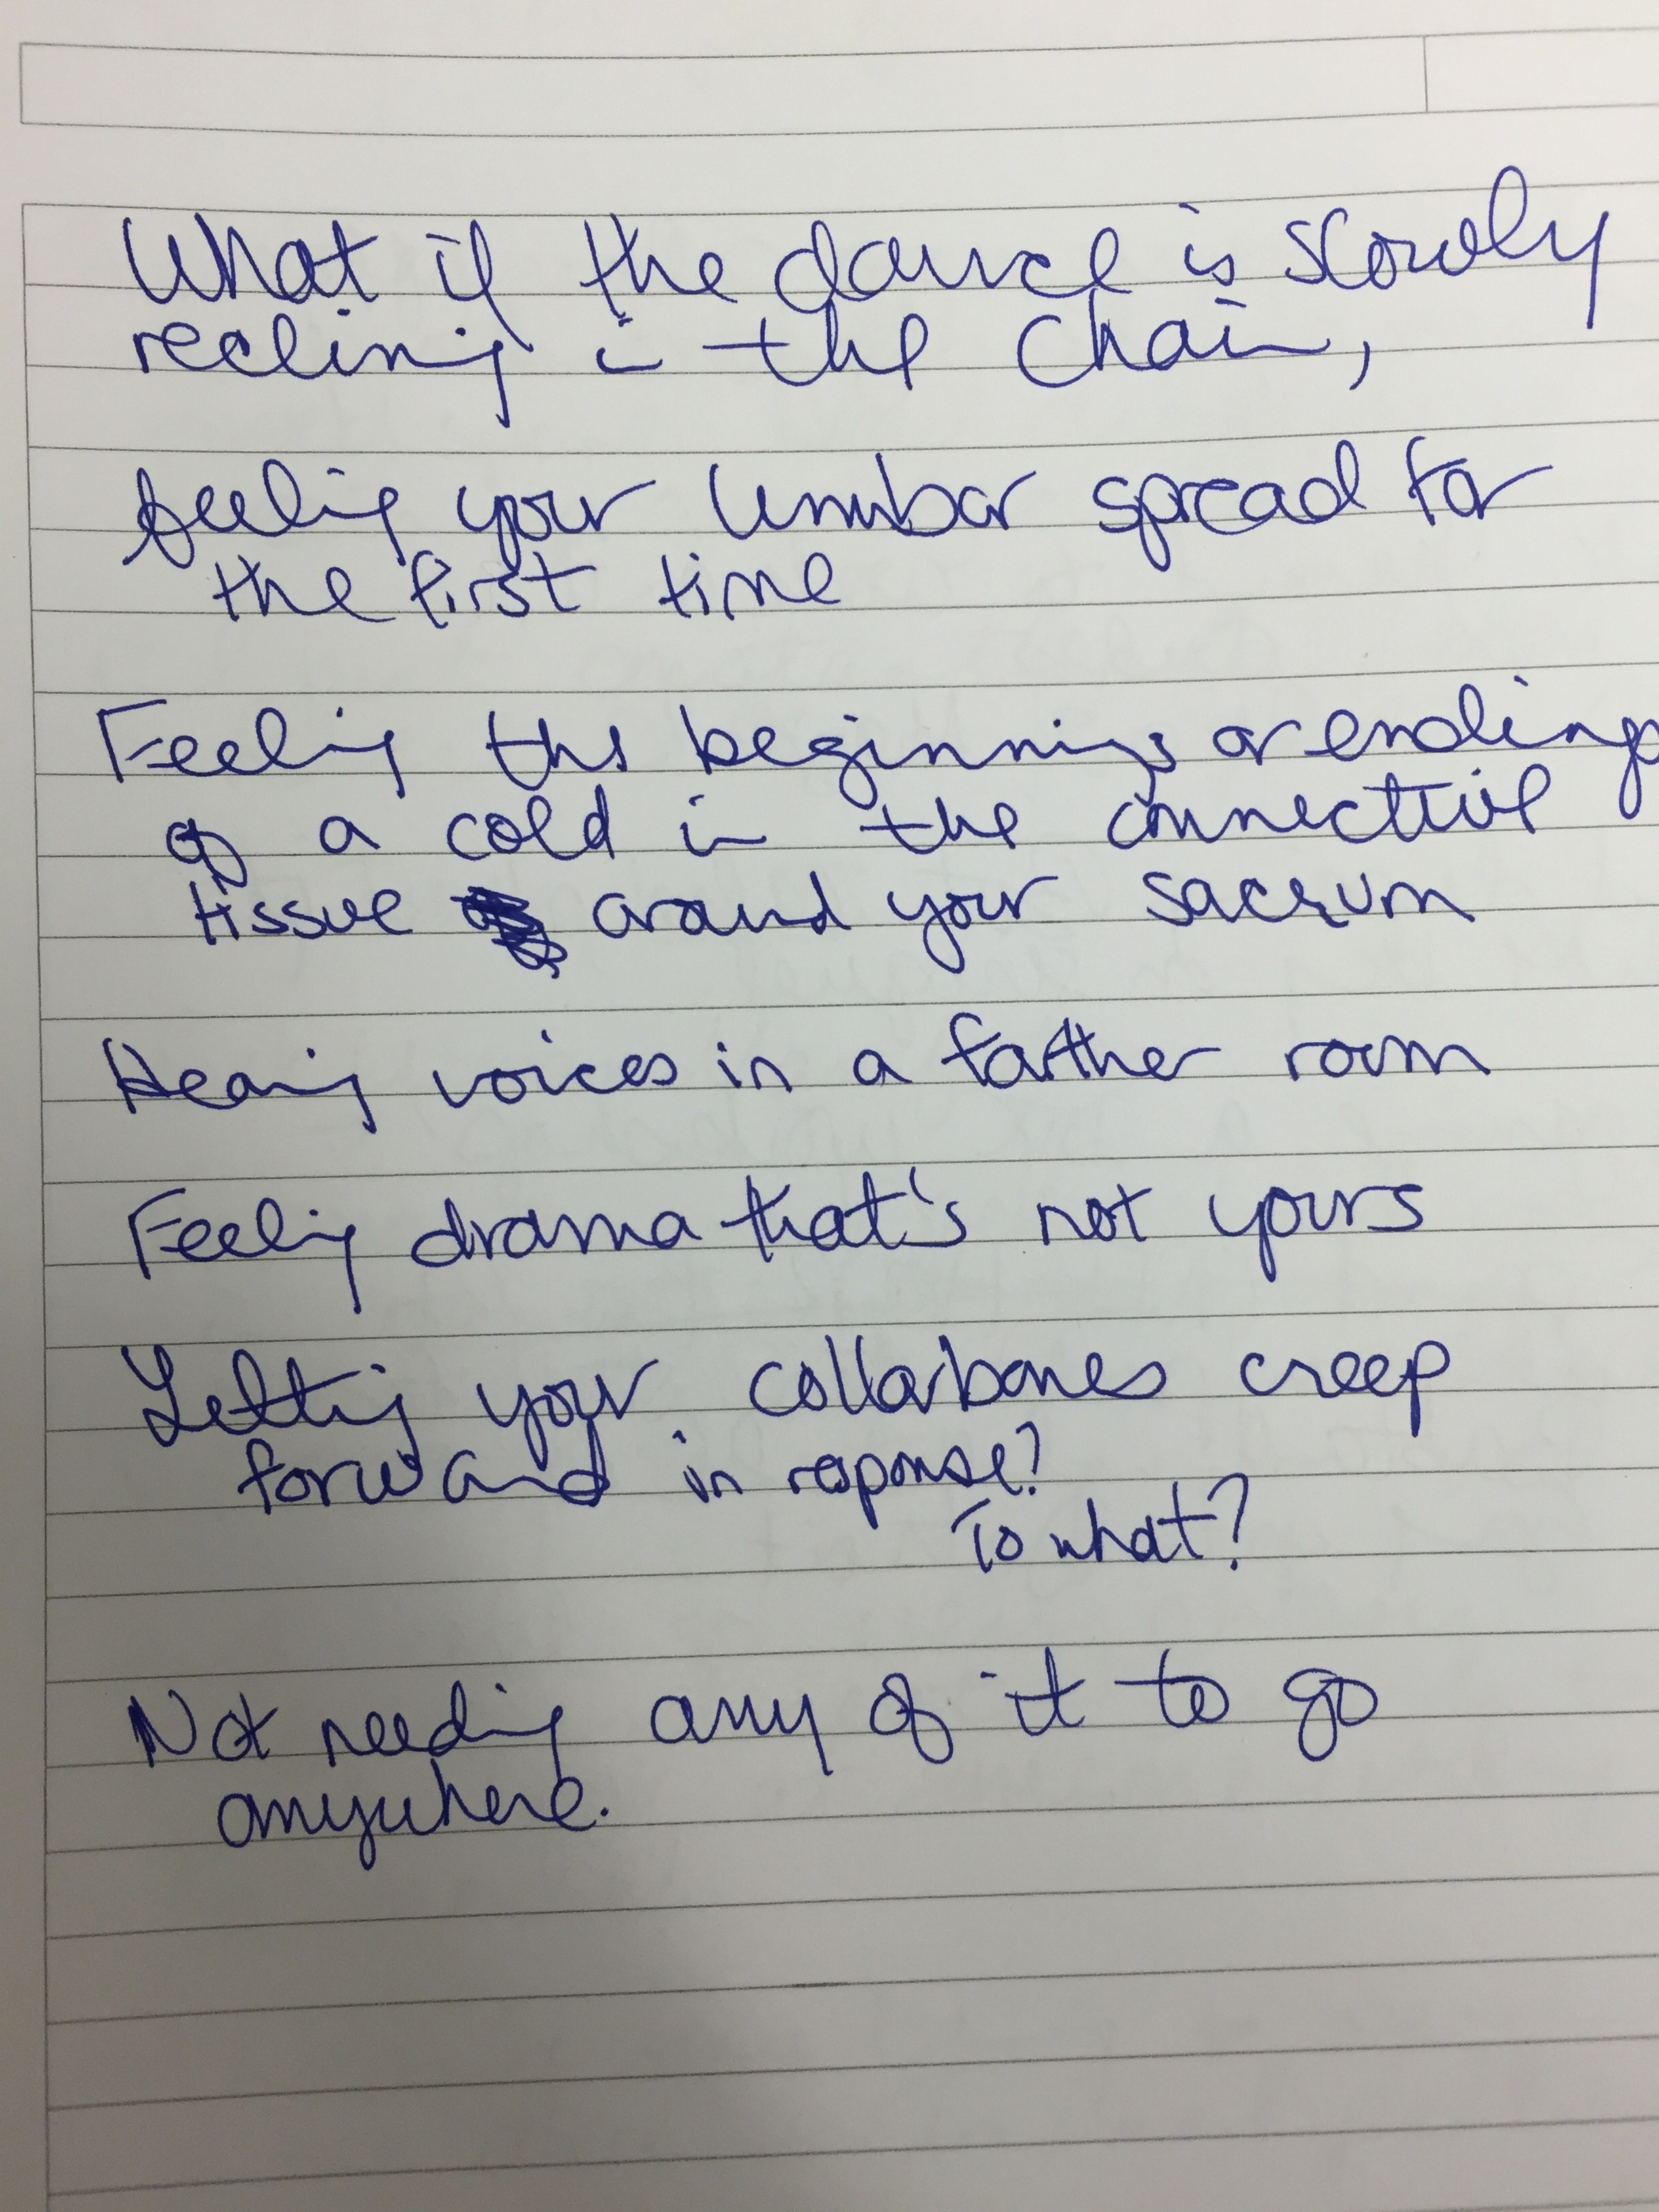 What if the dance is slowly
reclining in the chair,
feeling your lumbar spread for
the first time
Feeling the beginnings or endings
of a cold in the connective
tissue around your sacrum
Hearing voices in a farther room
Feeling drama that's not yours
Letting your collarbones creep
forward in reponse?
To what?
Not needing any of it to go
anywhere.